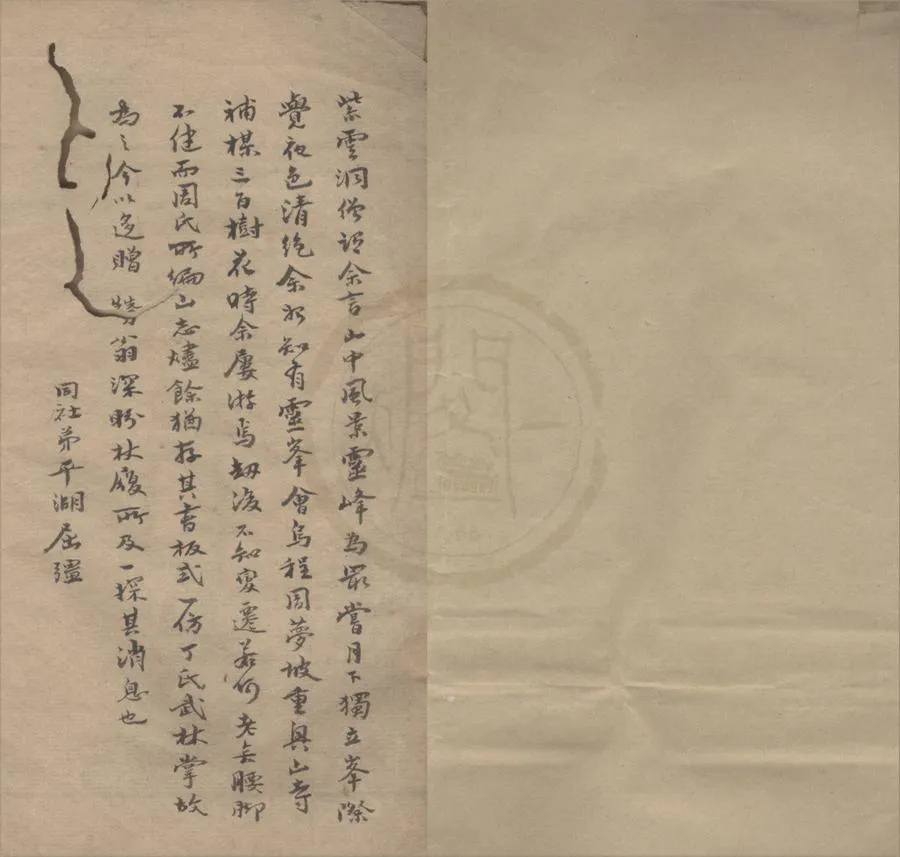 紫雲洞僧語余言山中風景靈峰為最當月下獨立峯際
覺夜色清絶余始知有靈峯會烏程周夢坡重興山寺
補梅三百樹花時余屢游焉劫後不知變遷若何老去腰腳
不健而周氏所編山志燼餘猶存其書板式一仿丁氏武林掌故
為之今以迻贈 翁深盼杖履所及一探其消息也
同社弟平湖屈彊